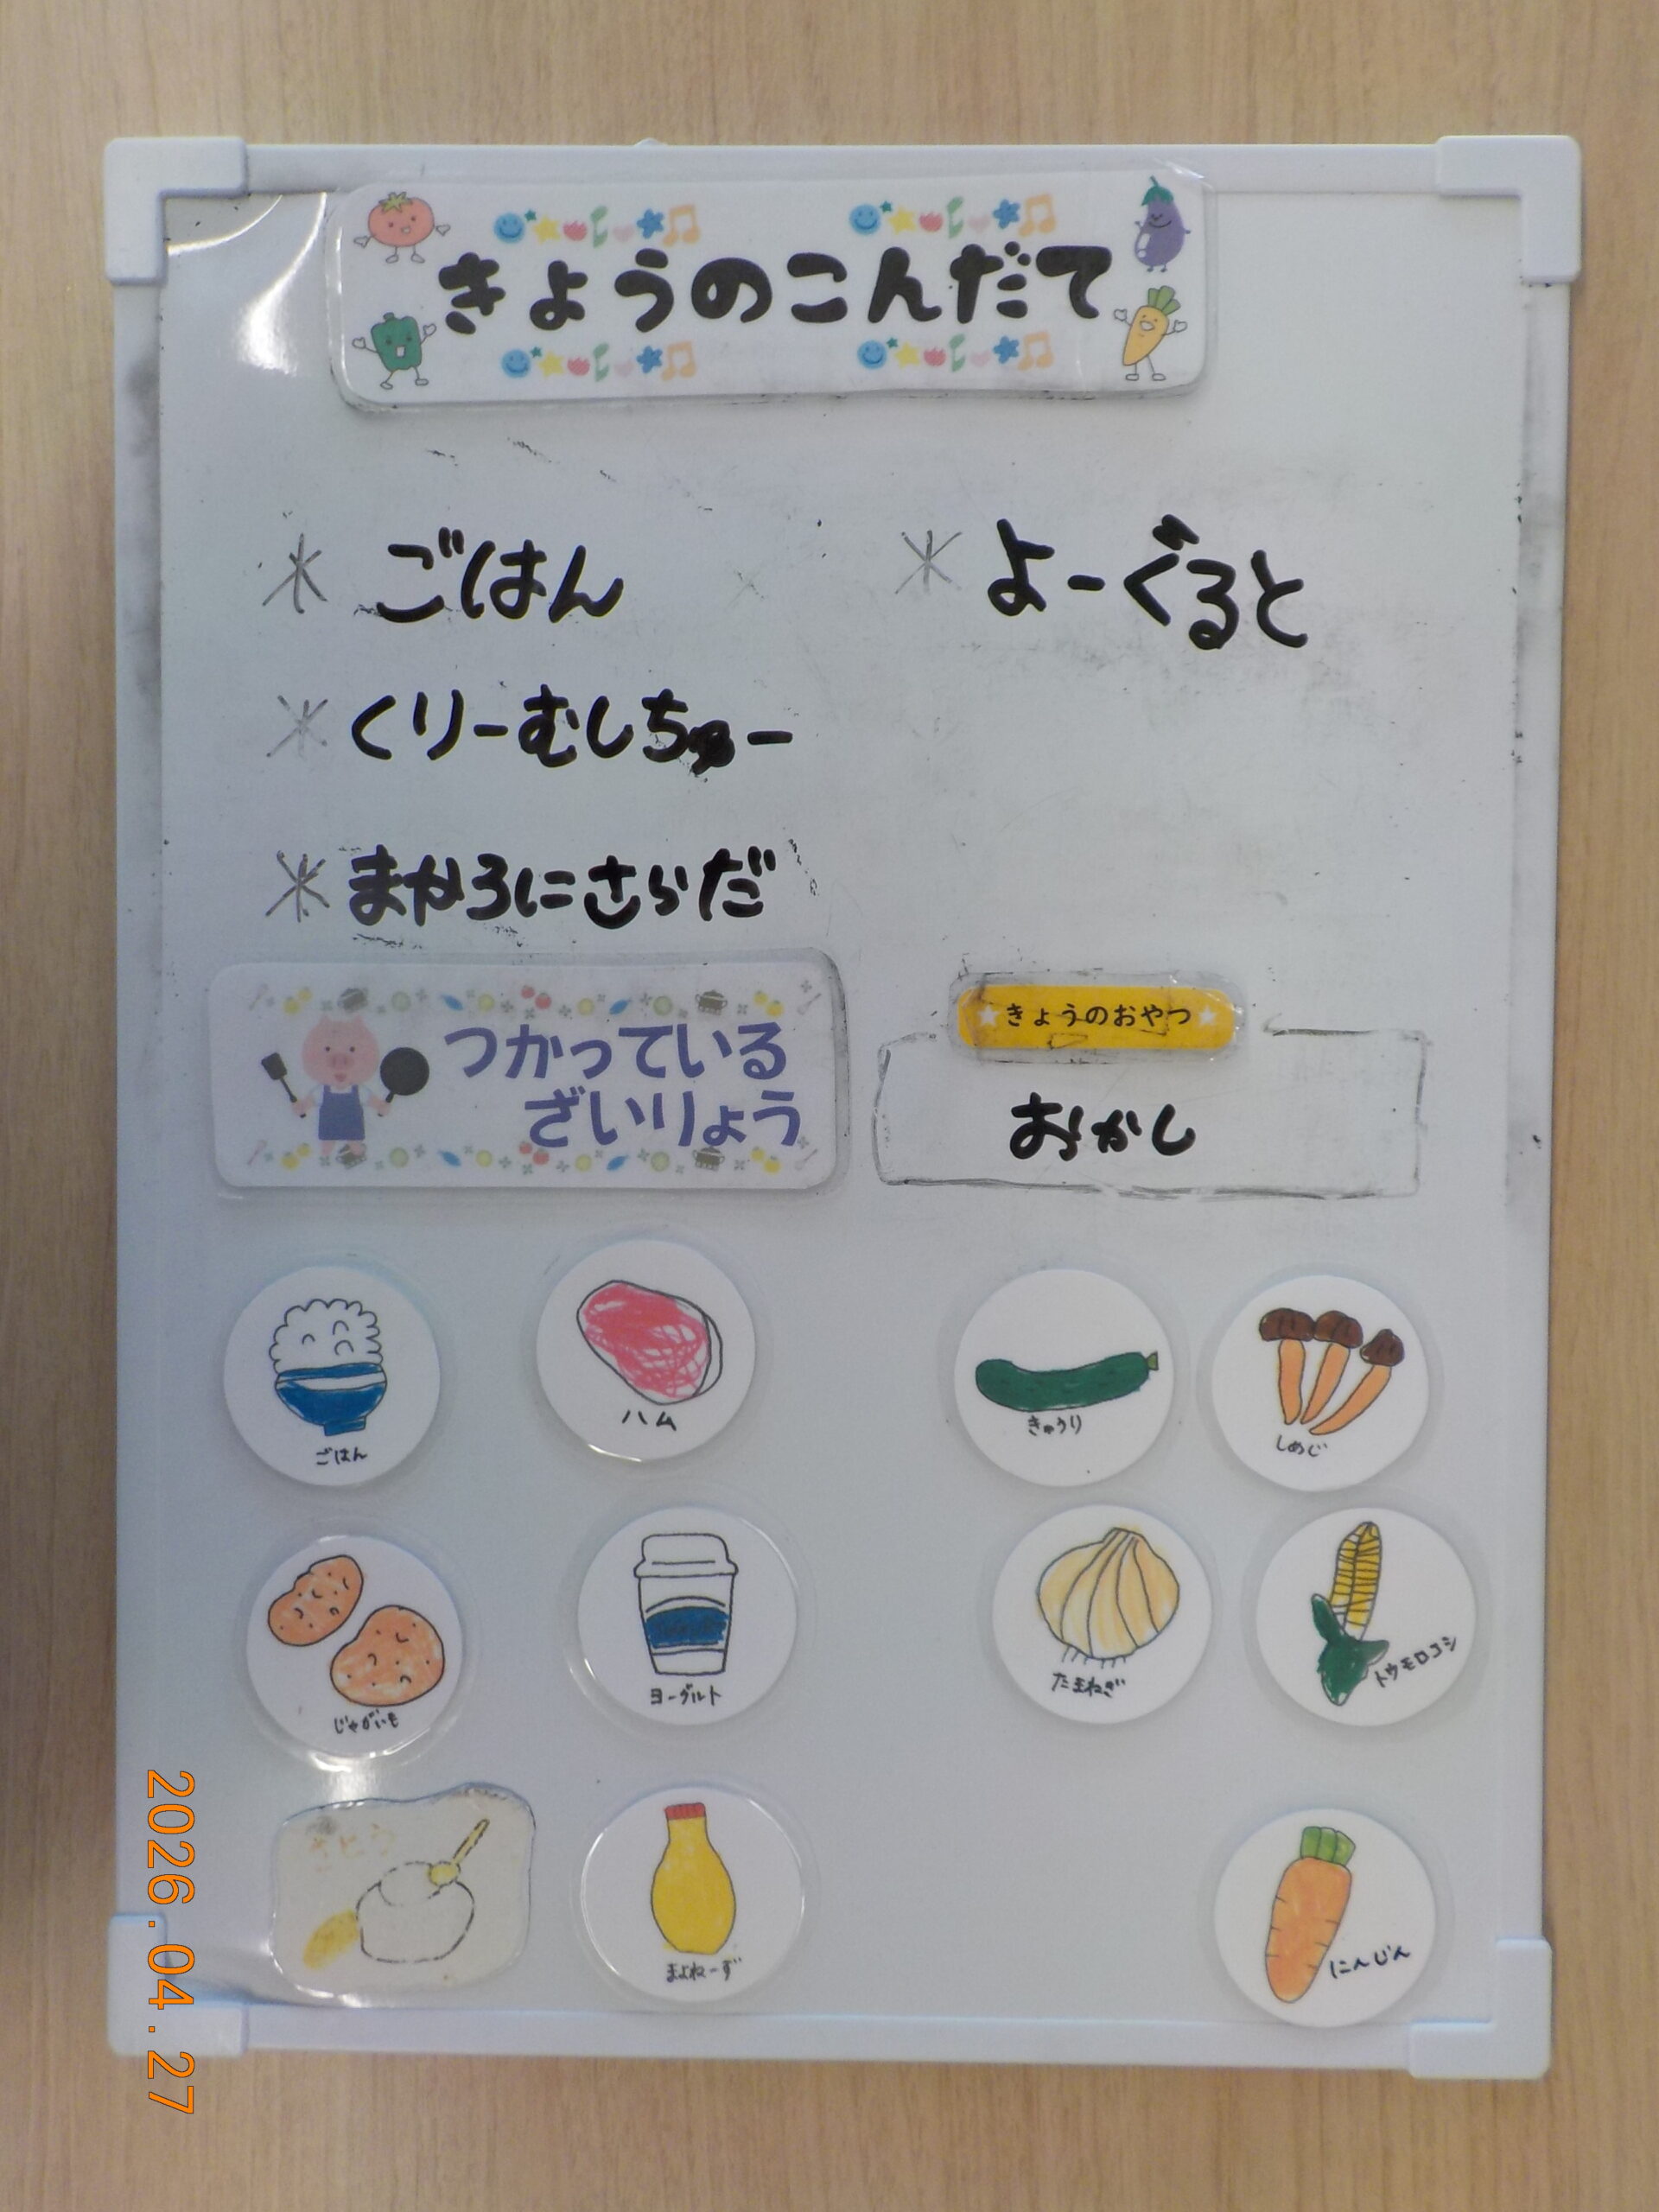 きょうのこんだて
＊ ごはん
＊ くりーむしちゅー
＊ まかろにさらだ
＊ よーぐると
つかっている
ざいりょう
きょうのおやつ
おかし
ごはん
ハム
きゅうり
しめじ
じゃがいも
ヨーグルト
たまねぎ
トウモロコシ
さとう
まよねーず
にんじん
2026.04.27